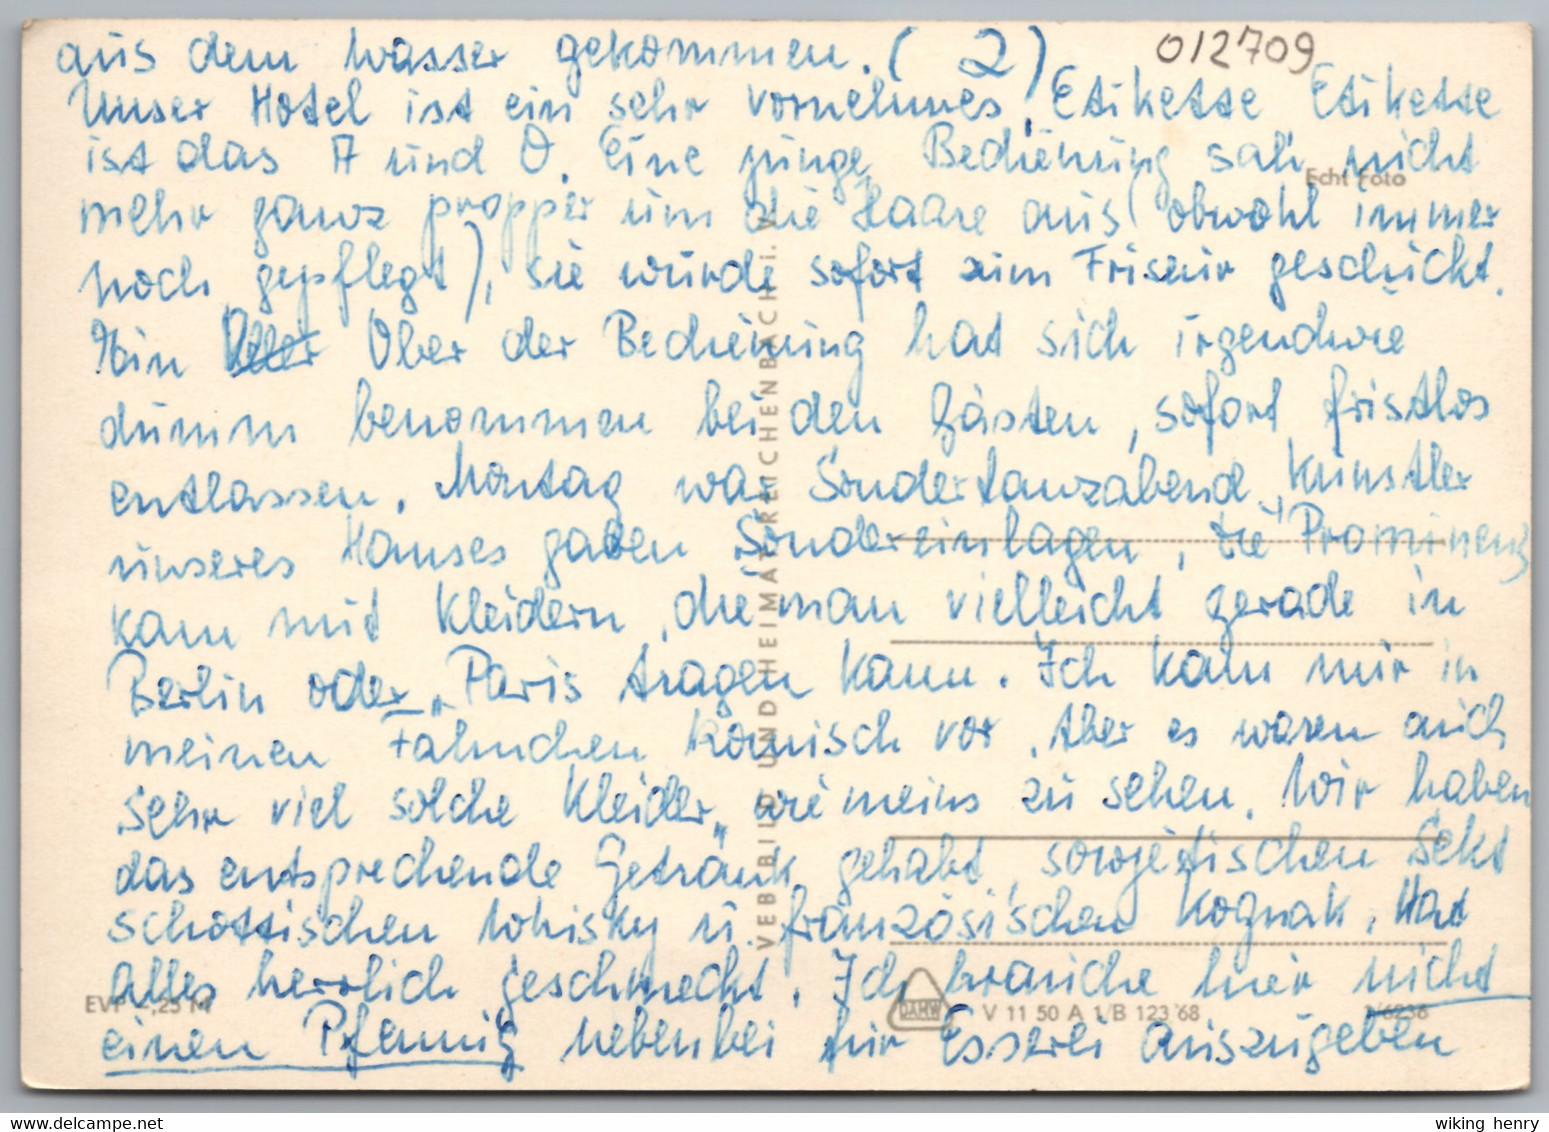 aus dem Wasser gekommen. (2)
012709
Unser Hotel ist ein sehr vornehmes, Etikette Etikette
ist das A und O. Eine junge Bedienung sah nicht
Echt Foto
mehr ganz propper um die Haare aus (obwohl immer
noch gepflegt), sie wurde sofort zum Friseur geschickt.
Ein Ober der Bedienung hat sich irgendwie
dumm benommen bei den Gästen, sofort fristlos
entlassen. Montag war Sondertanzabend, Künstler
unseres Hauses gaben Sondereinlagen, die "Prominenz
kam mit Kleidern, die man vielleicht gerade in
Berlin oder Paris tragen kann. Ich kam mir in
meinen Fähnchen komisch vor. Aber es waren auch
sehr viel solche Kleider, wie meins zu sehen. Wir haben
das entsprechende Getränk gehabt, sowjetischen Sekt
schottischen Whisky u. französischen Kognak. Hat
alles herrlich geschmeckt. Ich brauche hier nicht
einen Pfennig nebenbei für Esserei auszugeben
VEB BILD UND HEIMAT REICHENBACH i. V.
EVP -,25 M
DAHW
V 11 50 A 1/B 123 '68
1/6236
wiking henry